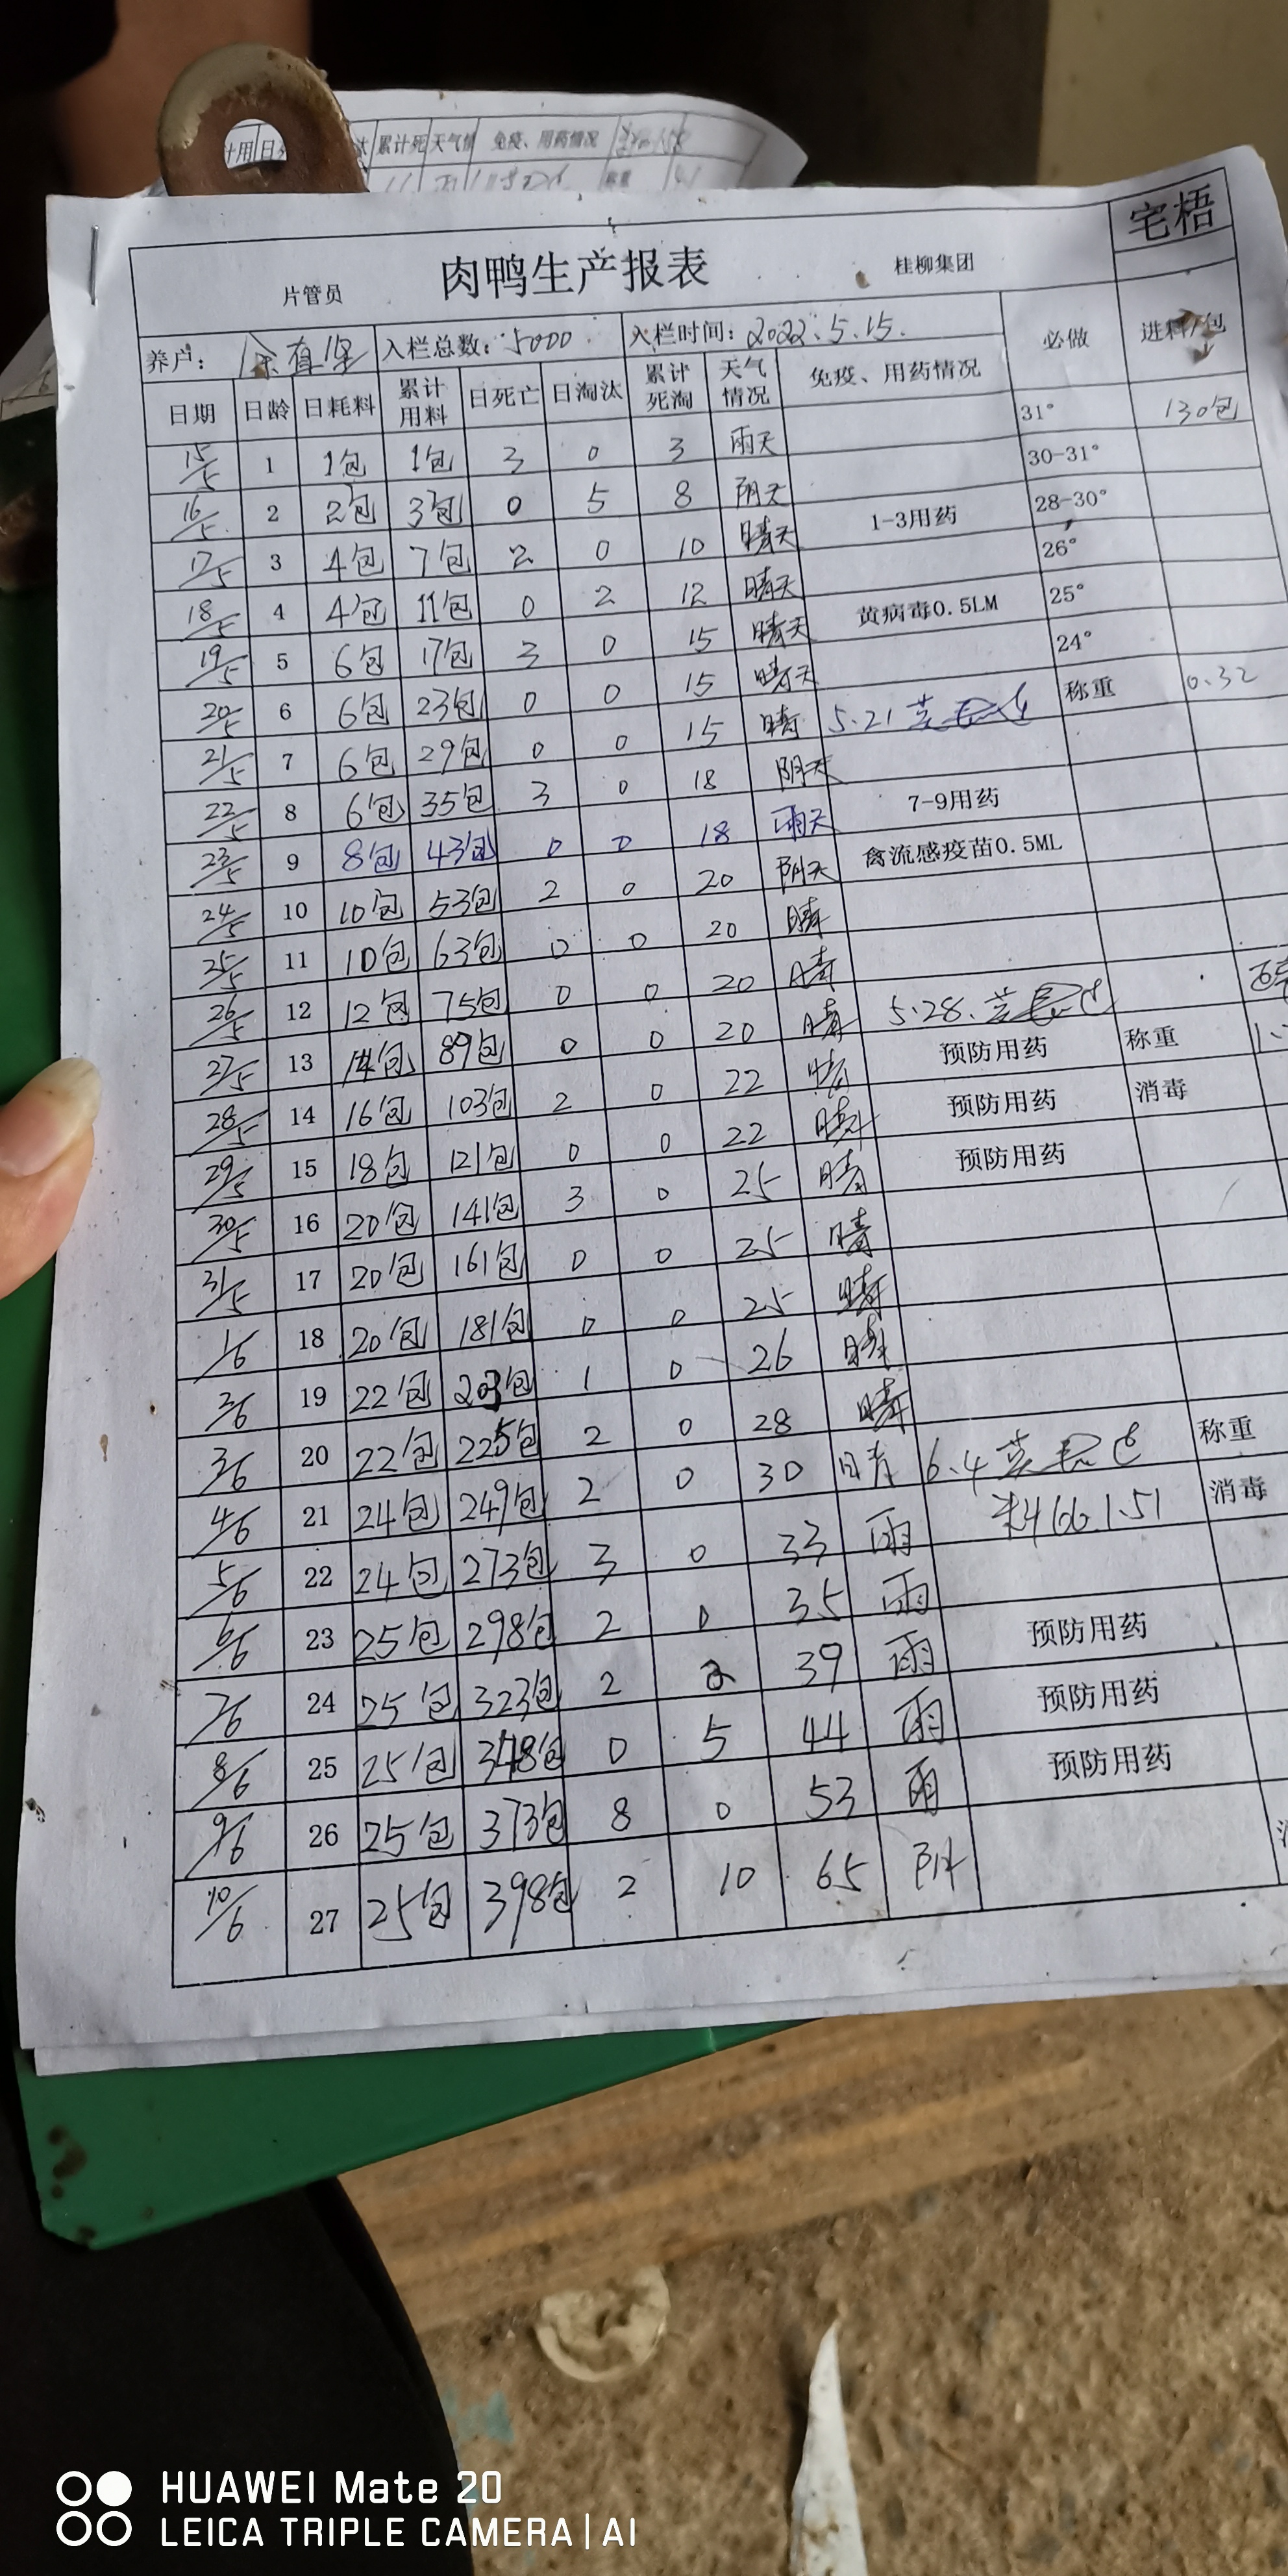 累计死 天气情 免疫、用药情况
宅梧
片管员 肉鸭生产报表 桂柳集团
养户： 入栏总数：5000 入栏时间：2022.5.15. 必做 进料/包
日期 日龄 日耗料 累计用料 日死亡 日淘汰 累计死淘 天气情况 免疫、用药情况
15/5 1 1包 1包 3 0 3 雨天 31° 130包
16/5 2 2包 3包 0 5 8 阴天 30-31°
17/5 3 4包 7包 2 0 10 晴天 1-3用药 28-30°
18/5 4 4包 11包 0 2 12 晴天 26°
19/5 5 6包 17包 3 0 15 晴天 黄病毒0.5LM 25°
20/5 6 6包 23包 0 0 15 晴天 24°
21/5 7 6包 29包 0 0 15 晴 5.21 称重 0.32
22/5 8 6包 35包 3 0 18 阴天
23/5 9 8包 43包 0 0 18 雨天 7-9用药
24/5 10 10包 53包 2 0 20 阴天 禽流感疫苗0.5ML
25/5 11 10包 63包 0 0 20 晴
26/5 12 12包 75包 0 0 20 晴
27/5 13 14包 89包 0 0 20 晴 5.28.
28/5 14 16包 103包 2 0 22 晴 预防用药 称重
29/5 15 18包 121包 0 0 22 晴 预防用药 消毒
30/5 16 20包 141包 3 0 25 晴 预防用药
31/5 17 20包 161包 0 0 25 晴
1/6 18 20包 181包 0 0 25 晴
2/6 19 22包 203包 1 0 26 晴
3/6 20 22包 225包 2 0 28 晴
4/6 21 24包 249包 2 0 30 晴 6.4 称重
5/6 22 24包 273包 3 0 33 雨 料466.1.51 消毒
6/6 23 25包 298包 2 0 35 雨
7/6 24 25包 323包 2 2 39 雨 预防用药
8/6 25 25包 348包 0 5 44 雨 预防用药
9/6 26 25包 373包 8 0 53 雨 预防用药
10/6 27 25包 398包 2 10 65 阴
HUAWEI Mate 20
LEICA TRIPLE CAMERA | AI